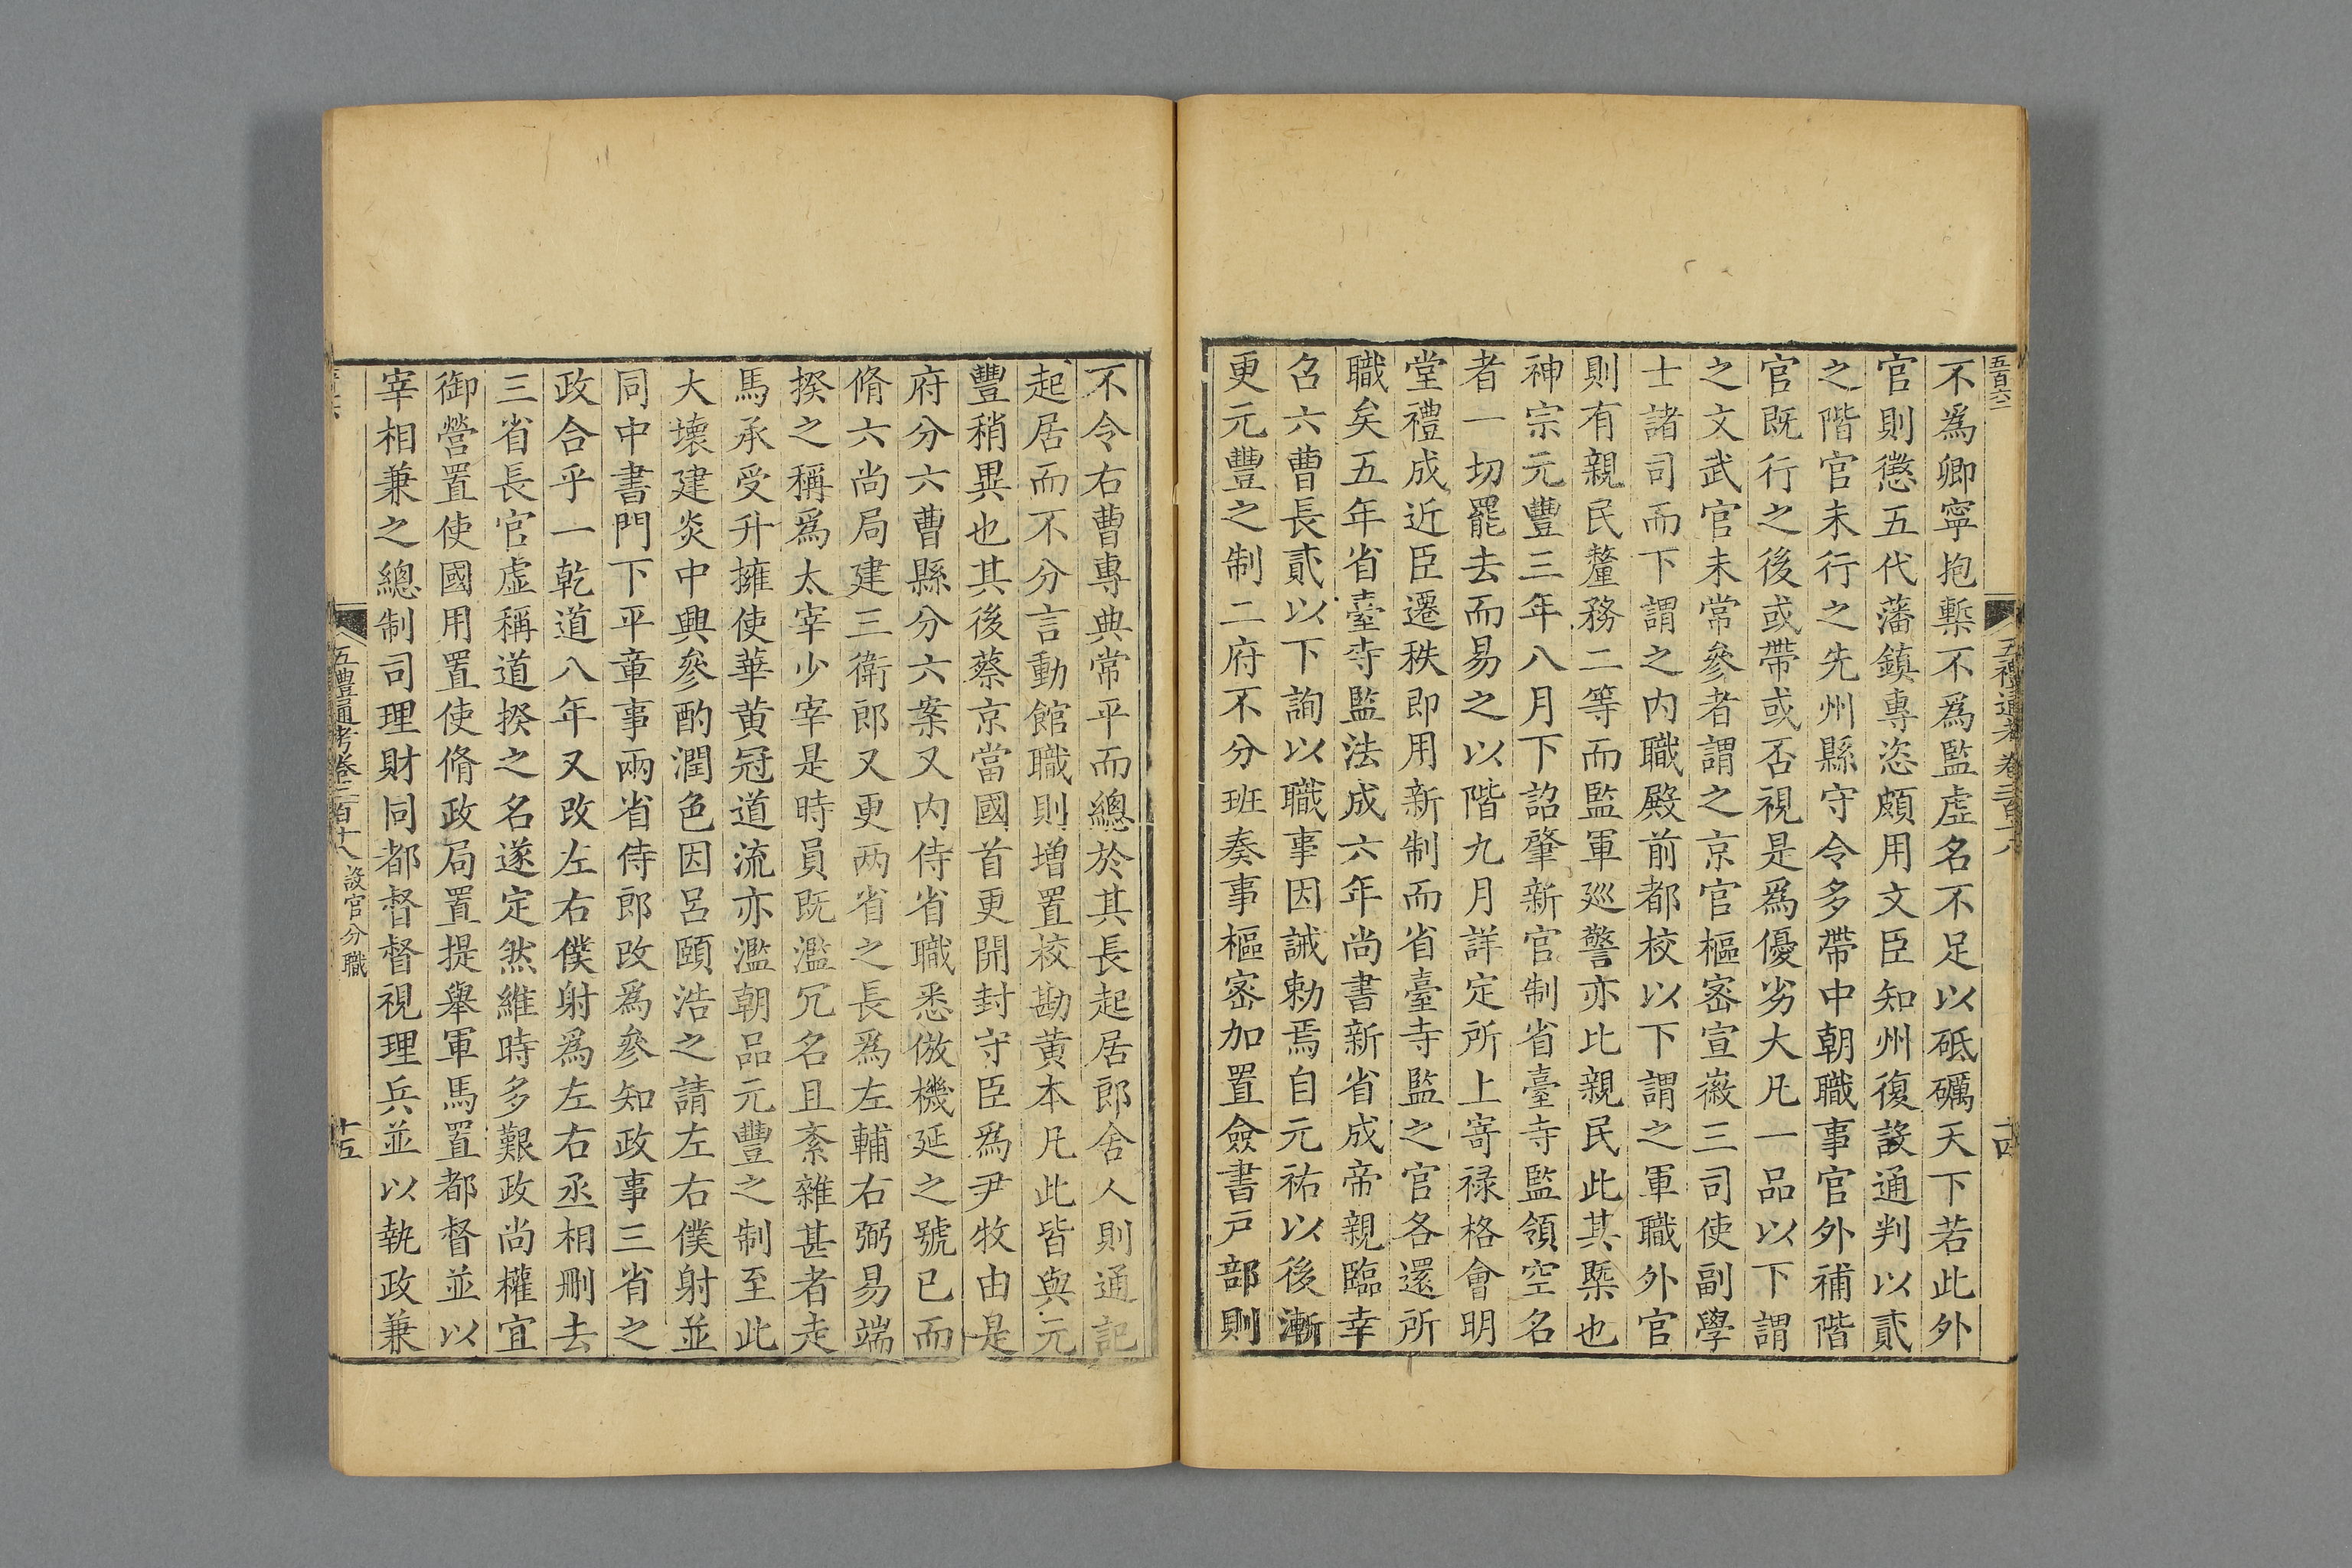 五百六二
五禮通考卷二百十八
十四
不爲卿寜抱槧不爲監虛名不足以砥礪天下若此外
官則懲五代藩鎮專恣頗用文臣知州復設通判以貳
之階官未行之先州縣守令多帶中朝職事官外補階
官既行之後或帶或否視是爲優劣大凡一品以下謂
之文武官未常參者謂之京官樞密宣徽三司使副學
士諸司而下謂之内職殿前都校以下謂之軍職外官
則有親民釐務二等而監軍巡警亦比親民此其槩也
神宗元豐三年八月下詔肇新官制省臺寺監領空名
者一切罷去而易之以階九月詳定所上寄禄格會明
堂禮成近臣遷秩即用新制而省臺寺監之官各還所
職矣五年省臺寺監法成六年尚書新省成帝親臨幸
召六曹長貳以下詢以職事因誡勅焉自元祐以後漸
更元豐之制二府不分班奏事樞密加置僉書戸部則
不令右曹專典常平而總於其長起居郎舍人則通記
起居而不分言動館職則增置校勘黄本凡此皆與元
豐稍異也其後蔡京當國首更開封守臣爲尹牧由是
府分六曹縣分六案又内侍省職悉倣機延之號已而
脩六尚局建三衛郎又更两省之長爲左輔右弼易端
揆之稱爲太宰少宰是時員既濫冗名且紊雜甚者走
馬承受升擁使華黄冠道流亦濫朝品元豐之制至此
大壞建炎中興參酌潤色因呂頤浩之請左右僕射並
同中書門下平章事兩省侍郎改爲參知政事三省之
政合乎一乾道八年又改左右僕射爲左右丞相刪去
三省長官虛稱道揆之名遂定然維時多艱政尚權宜
御營置使國用置使脩政局置提舉軍馬置都督並以
宰相兼之總制司理財同都督督視理兵並以執政兼
五禮通考卷二百十八 設官分職
十五